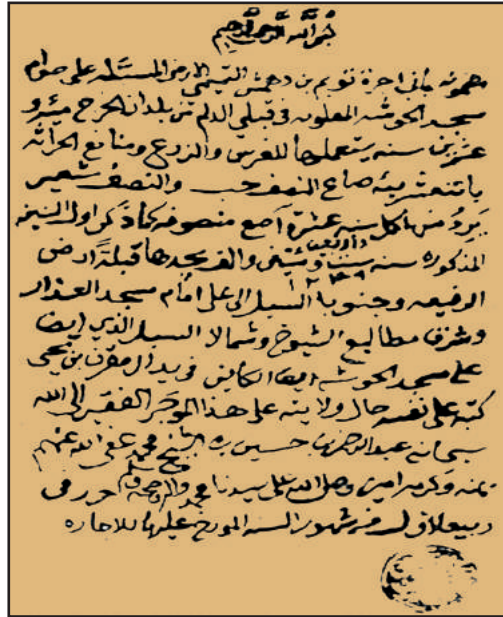 بسم الله الرحمن الرحيم
بأني اجرة نويم بن دهمش التميمي الارض المسبله على صوام
مسجد الحوشه المعلومه في قبلي الدلم من بلدان الخرج مية و
عشرين سنه يستعملها للغرس والزرع ومنافع الحراثه
باثنعشر مية صاع النصف حب والنصف شعير
منها كل سنه عشرة اصع منصوفه كما ذكر اول السنه
المذكوره سنه وميتين والف يحدها قبلة ارض
الرفيعه وجنوبا السبيل الى على امام مسجد العذار
وشرق مطاليع الشيوخ وشمالا السبيل الذي ايضا
على مسجد الحوشه ايضا الكاين في يد ال مقرن بن يحيى
كتبه على نفسه حال ولايته على هذا الموجر الفقير الى الله
سبحانه عبدالرحمن بن حسين بن الشيخ محمد عفى الله عنهم
بمنه وكرمه امين وصلى الله على سيدنا محمد واله وصحبه وسلم حرر في
ربيع الاول من شهور السنه المورخ عليها للاجاره